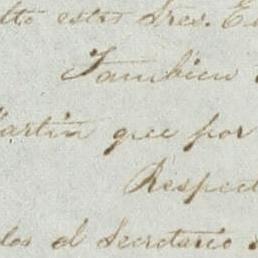 estos Sres.
Tambien
Martin que por
Respect
los el Secretario